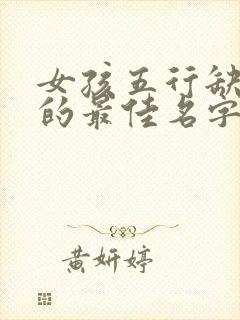 女孩五行缺
的最佳名字
黄妍婷